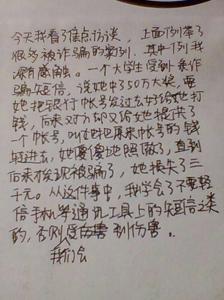 今天我看了焦点访谈，上面例举了
很多被诈骗的案例，其中一例我
深有感触。一个大学生受到
骗短信，说她中了50万大奖，需
她把银行帐号发过去好给她打
钱，后来对方却又给她提供了
一个帐号，叫她把原来帐号的钱
转进去，她傻傻地照做了，直到
后来才发现被骗了，她损失了三
千元。从这件事中，我学会了不要轻
信手机等通讯工具上的短信之类
的，否则 会伤害 受到伤害。
我们会